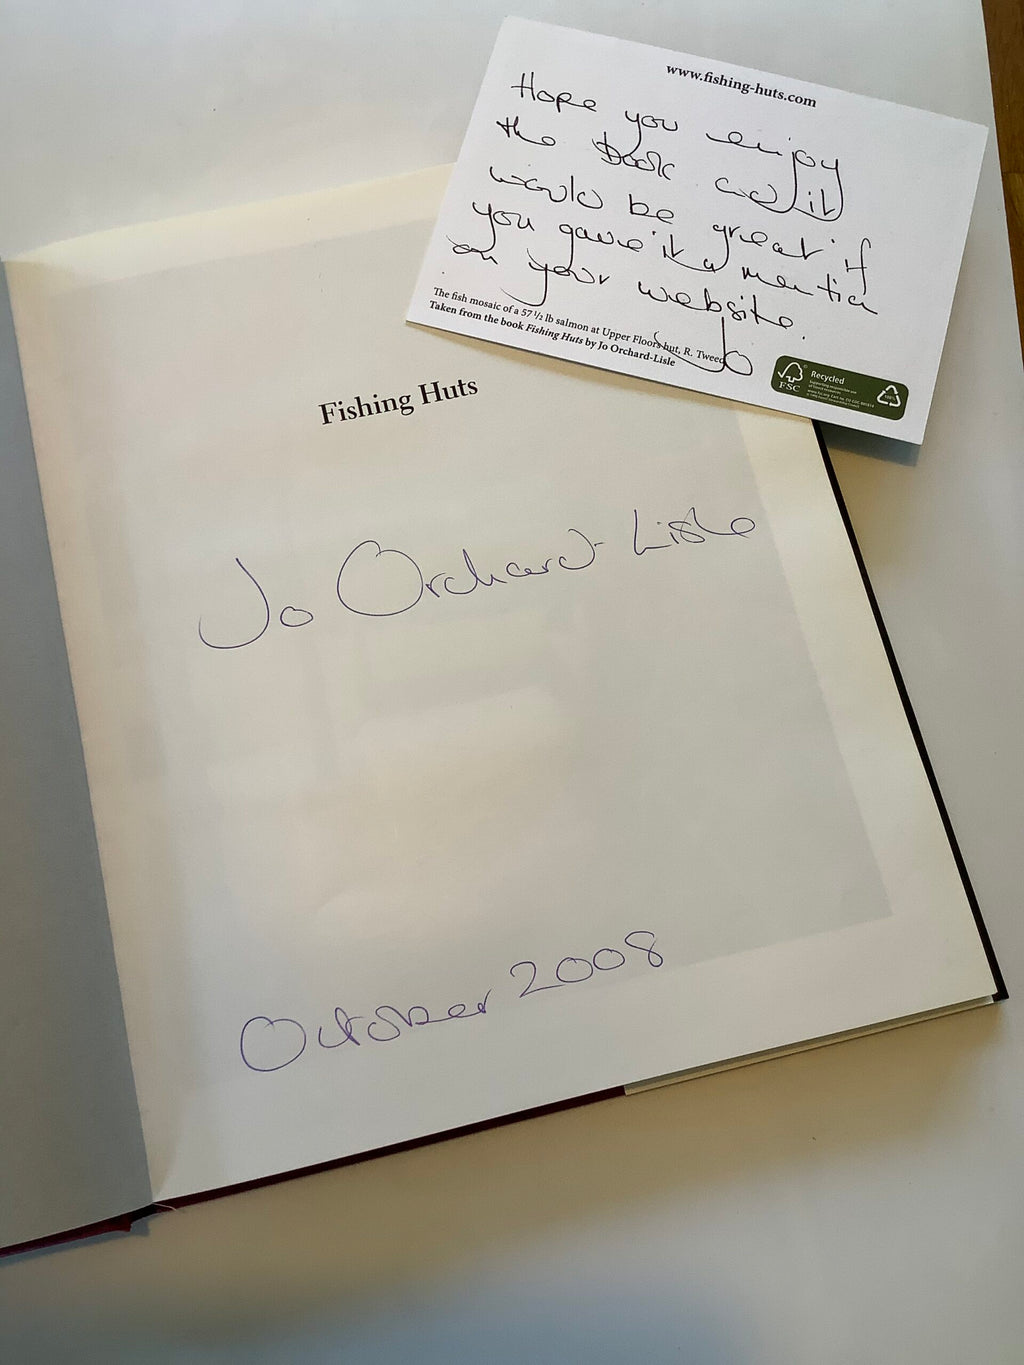 www.fishing-huts.com
Hope you enjoy
the book and it
would be great if
you gave it a mention
on your website.
Jo
The fish mosaic of a 57 ½ lb salmon at Upper Floors hut, R. Tweed
Taken from the book Fishing Huts by Jo Orchard-Lisle
FSC
Recycled
100%
Fishing Huts
Jo Orchard-Lisle
October 2008